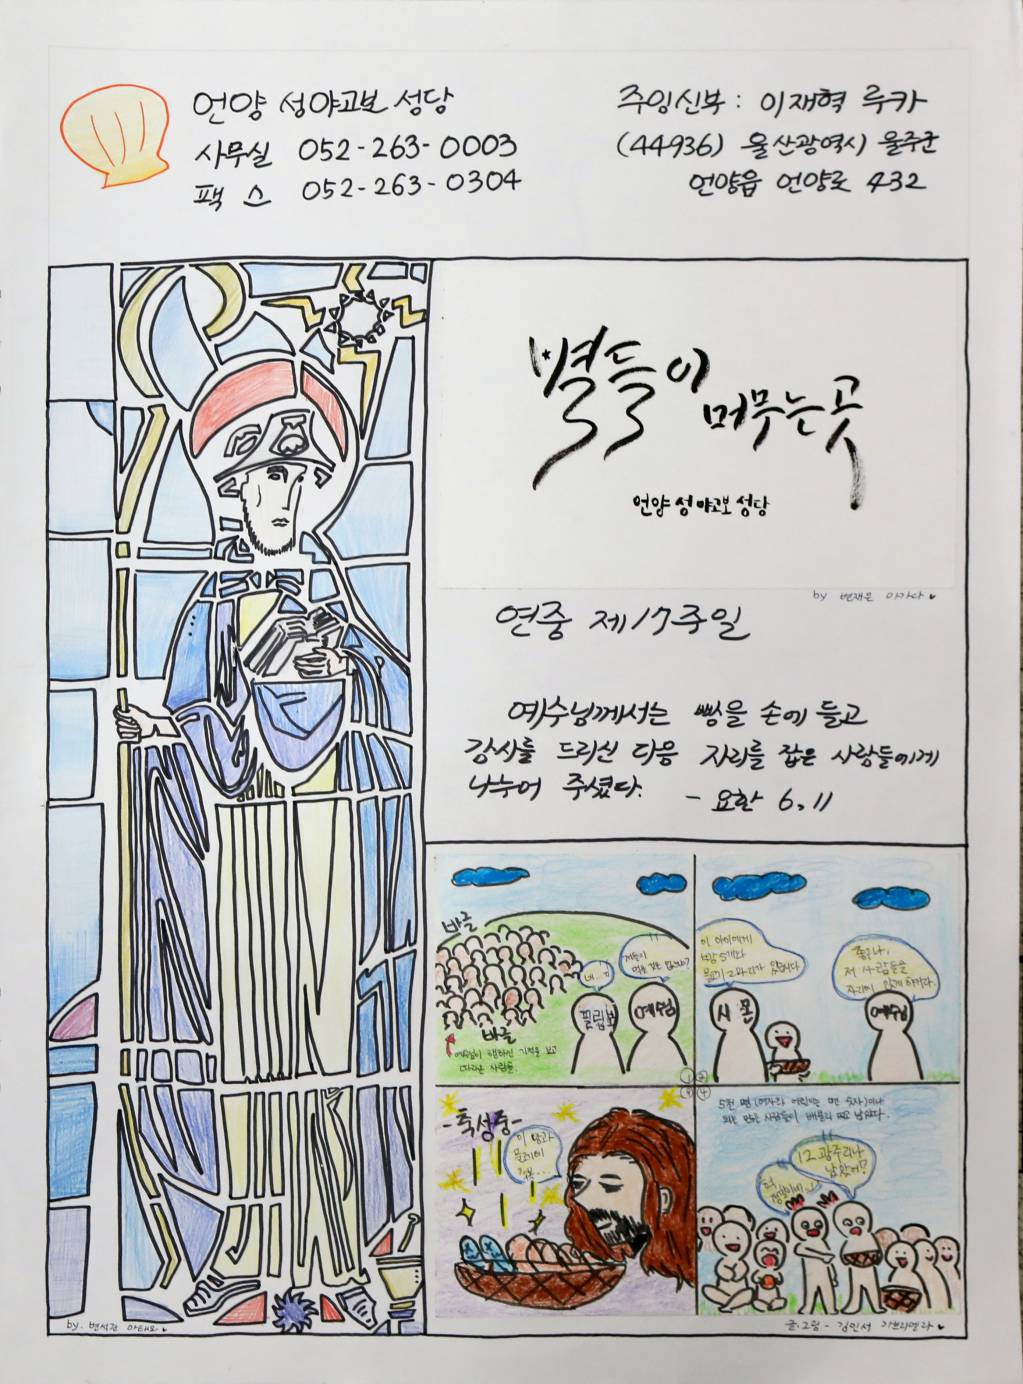 언양 성야고보 성당
사무실 052-263-0003
팩스 052-263-0304
주임신부 : 이재혁 루카
(44936) 울산광역시 울주군
언양읍 언양로 432
별들이 머무는 곳
언양 성야고보 성당
by 변재은 아가다
연중 제17주일
예수님께서는 빵을 손에 들고
감사를 드리신 다음 자리를 잡은 사람들에게
나누어 주셨다. - 요한 6, 11
바글
바글
예수님이 행하신 기적을 보고
따라온 사람들.
네..
필립보
예수님
이 아이에게
빵 5개와
물고기 2마리가 있습니다
시몬
좋구나,
저 사람들을
자리에 앉게 하여라.
예수님
1 2
3 4
-축성중-
이 빵과
물고기
5천 명(여자와 어린이는 뺀 숫자)이나
되는 많은 사람들이 배불리 먹고 남았다.
12 광주리나
남았네?
by. 변석진 마태오
글.그림 - 김민서 가브리엘라